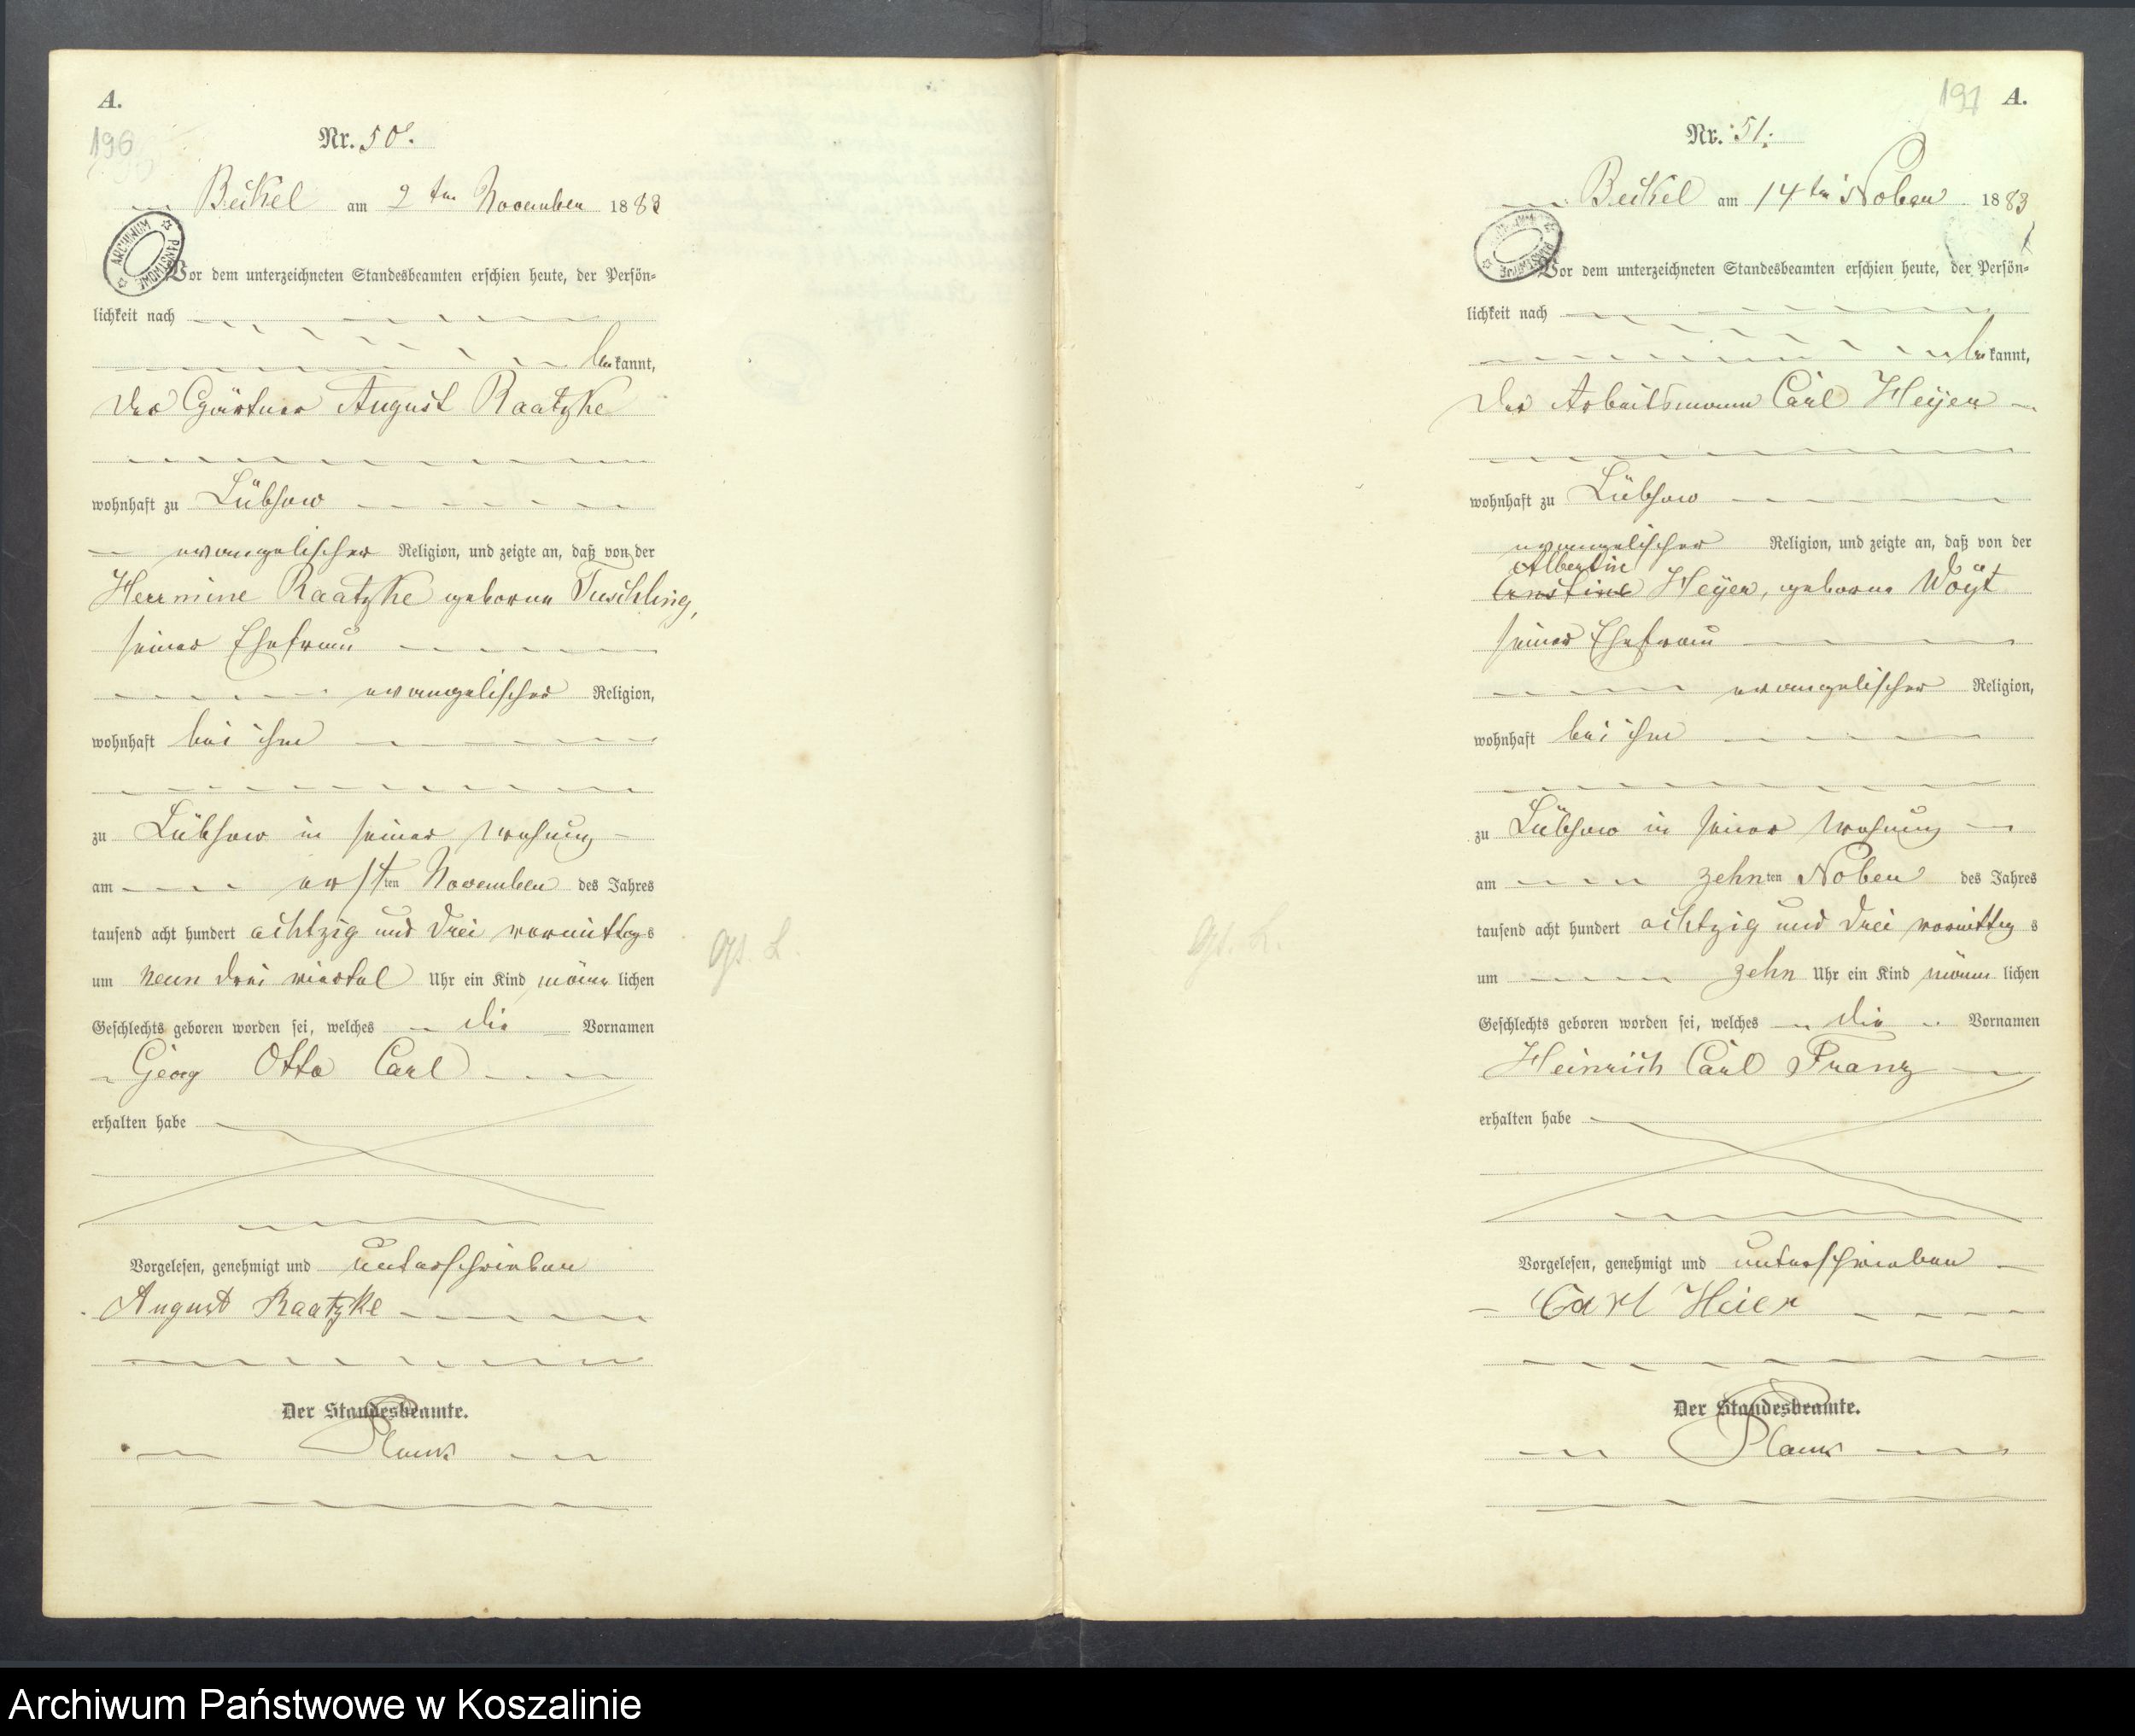 A.
196
Nr. 50.
Beckel am 2 ten November 1883
ARCHIWUM PAŃSTWOWE
Vor dem unterzeichneten Standesbeamten erschien heute, der Persön=
lichkeit nach
bekannt,
der Gärtner August Raatzke
wohnhaft zu Lübsow
evangelischer Religion, und zeigte an, daß von der
Hermine Raatzke geborne Tuschling,
seiner Ehefrau
evangelischer Religion,
wohnhaft bei ihm
zu Lübsow in seiner Wohnung
am ersten November des Jahres
tausend acht hundert achtzig und drei vormittags
um neun drei viertel Uhr ein Kind männlichen
Geschlechts geboren worden sei, welches die Vornamen
Georg Otto Carl
erhalten habe
Vorgelesen, genehmigt und unterschrieben
August Raatzke
Der Standesbeamte.
197 A.
Nr. 51.
Beckel am 14 ten Nobem 1883
ARCHIWUM PAŃSTWOWE
Vor dem unterzeichneten Standesbeamten erschien heute, der Persön=
lichkeit nach
bekannt,
der Arbeitsmann Carl Heyer
wohnhaft zu Lübsow
evangelischer Religion, und zeigte an, daß von der
Albertine
Ernstine Heyer, geborne Vogt
seiner Ehefrau
evangelischer Religion,
wohnhaft bei ihm
zu Lübsow in seiner Wohnung
am zehnten des Jahres
tausend acht hundert achtzig und drei vormittags
um zehn Uhr ein Kind männlichen
Geschlechts geboren worden sei, welches die Vornamen
Heinrich Carl Franz
erhalten habe
Vorgelesen, genehmigt und unterschrieben
Carl Heier
Der Standesbeamte.
Archiwum Państwowe w Koszalinie